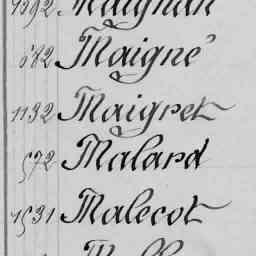 1392 Maignan
682 Maigné
1132 Maigret
572 Malard
1531 Malecot